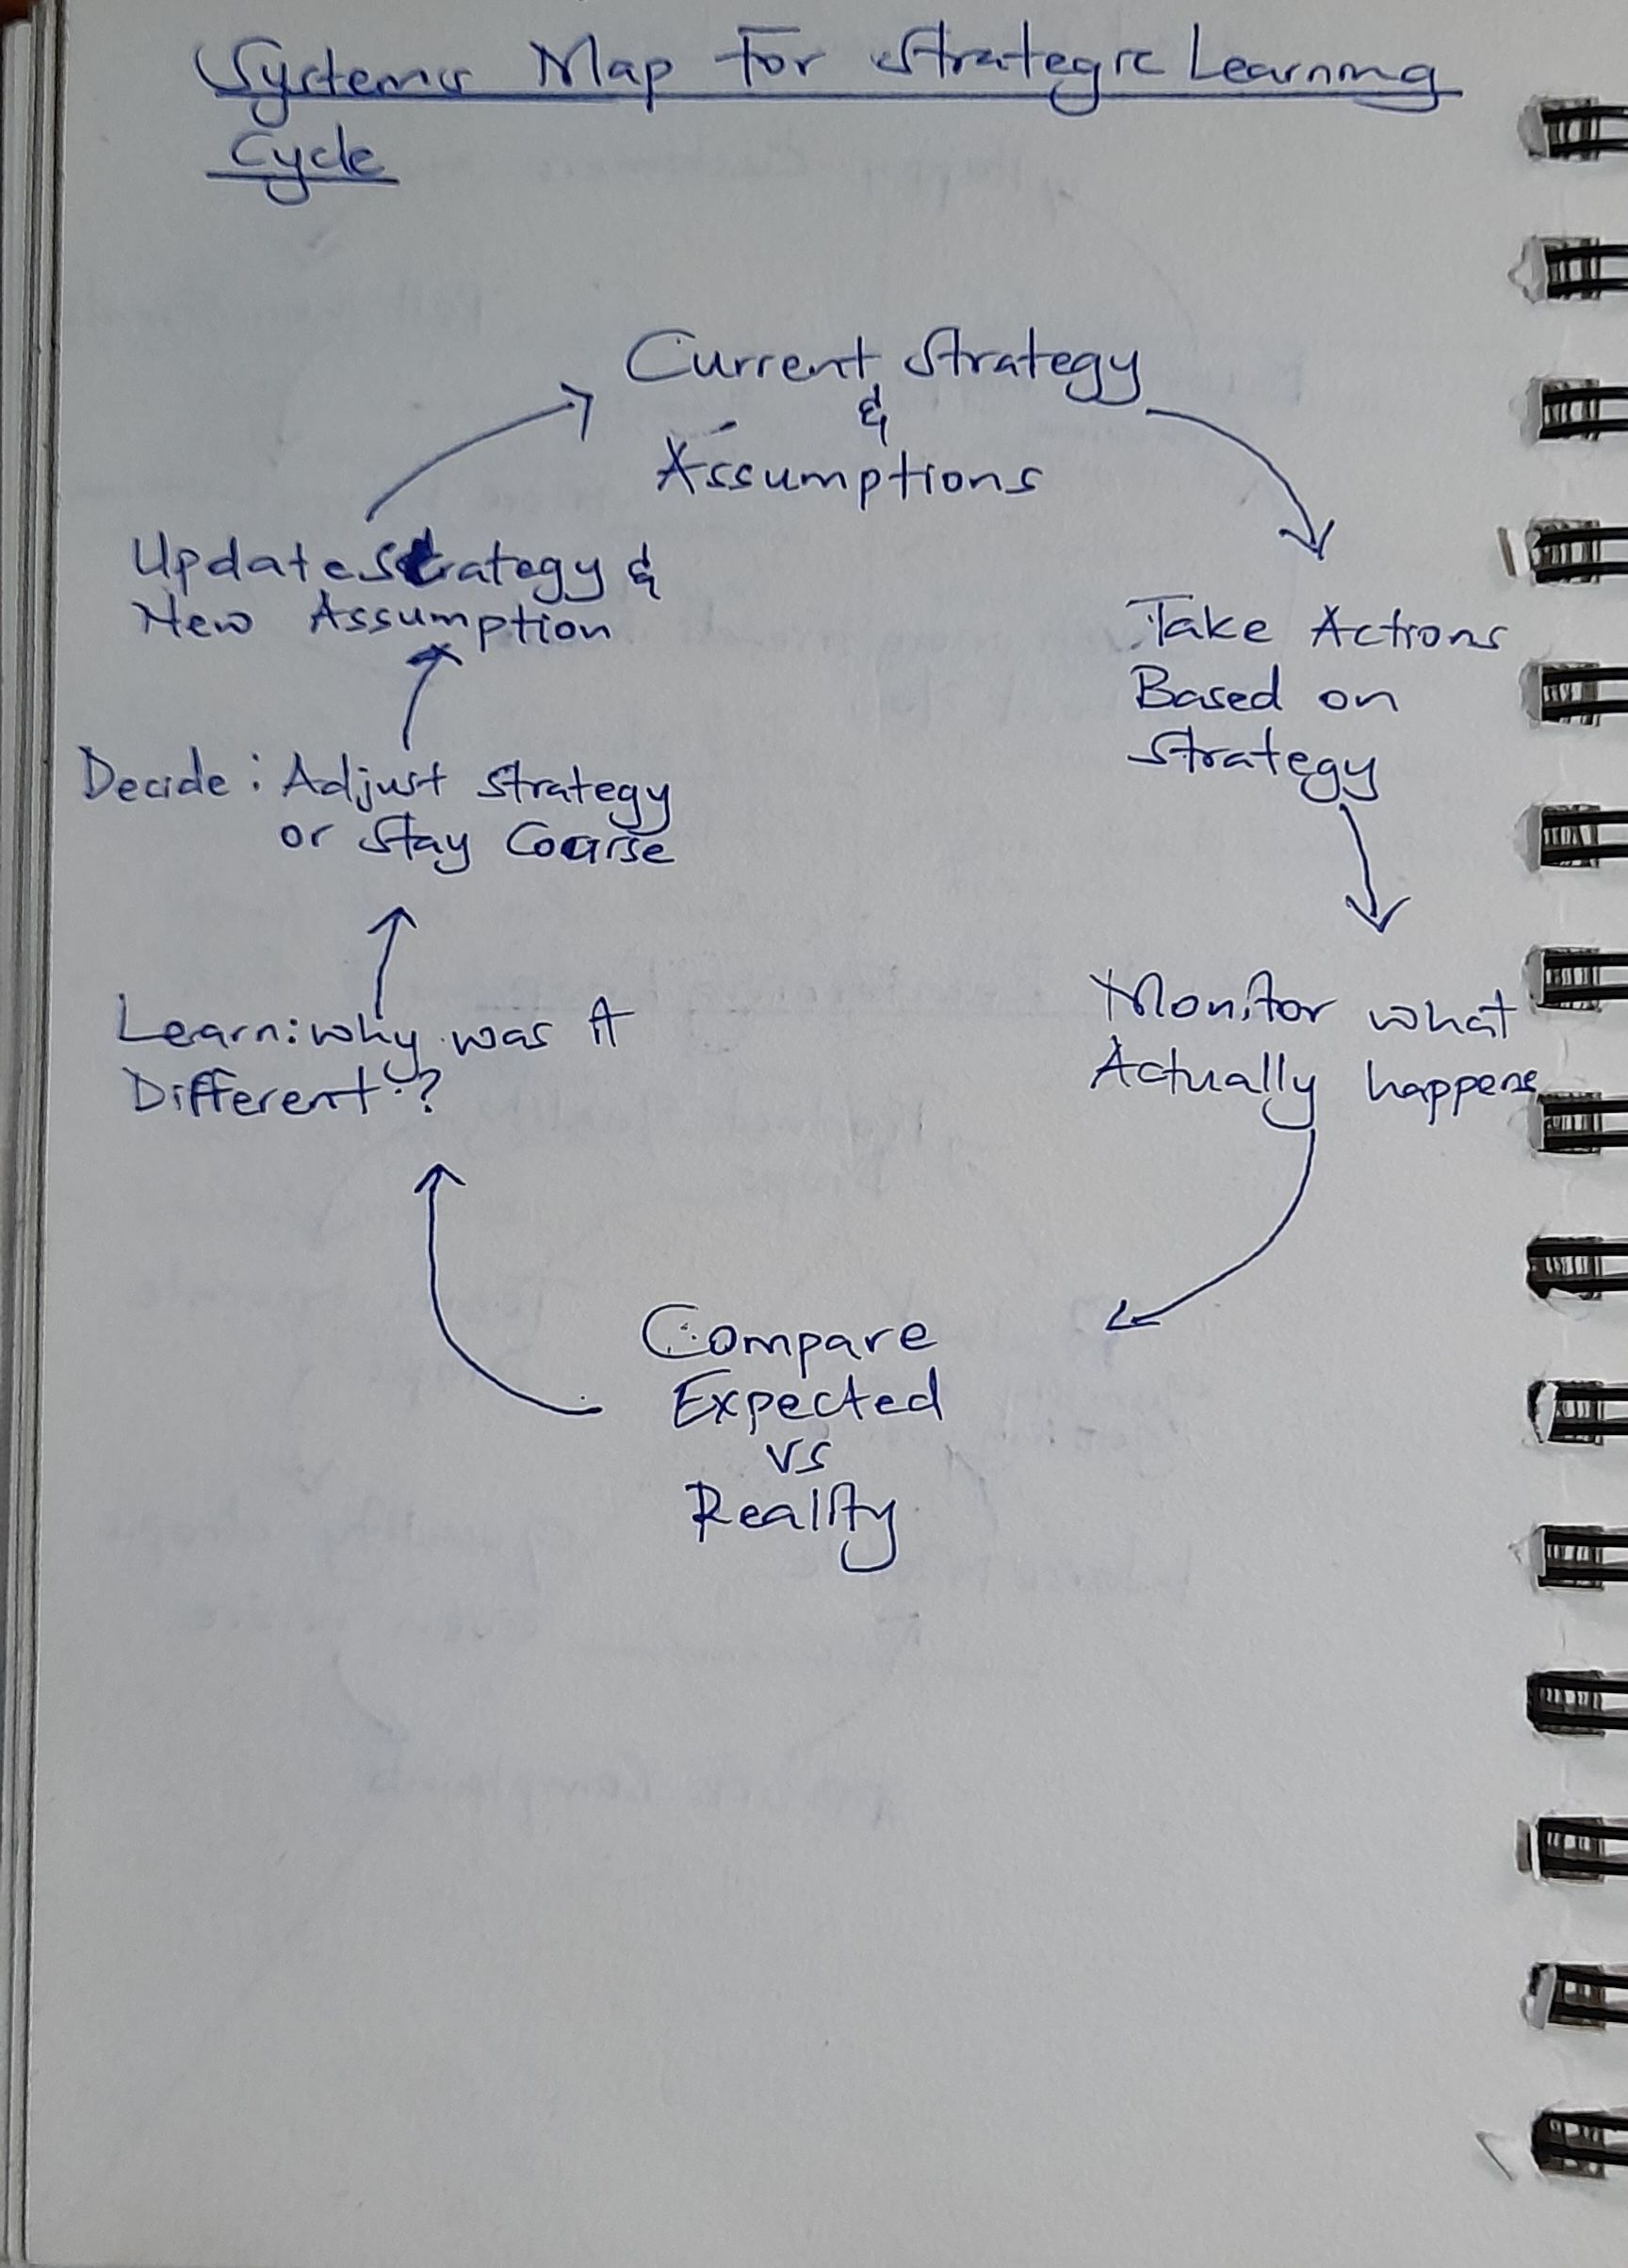 Systems Map For Strategic Learning
Cycle
Current Strategy
&
Assumptions
Take Actions
Based on
Strategy
Monitor what
Actually happens
Compare
Expected
vs
Reality
Learn: why was it
Different?
Decide: Adjust strategy
or Stay Course
Update Strategy &
New Assumption